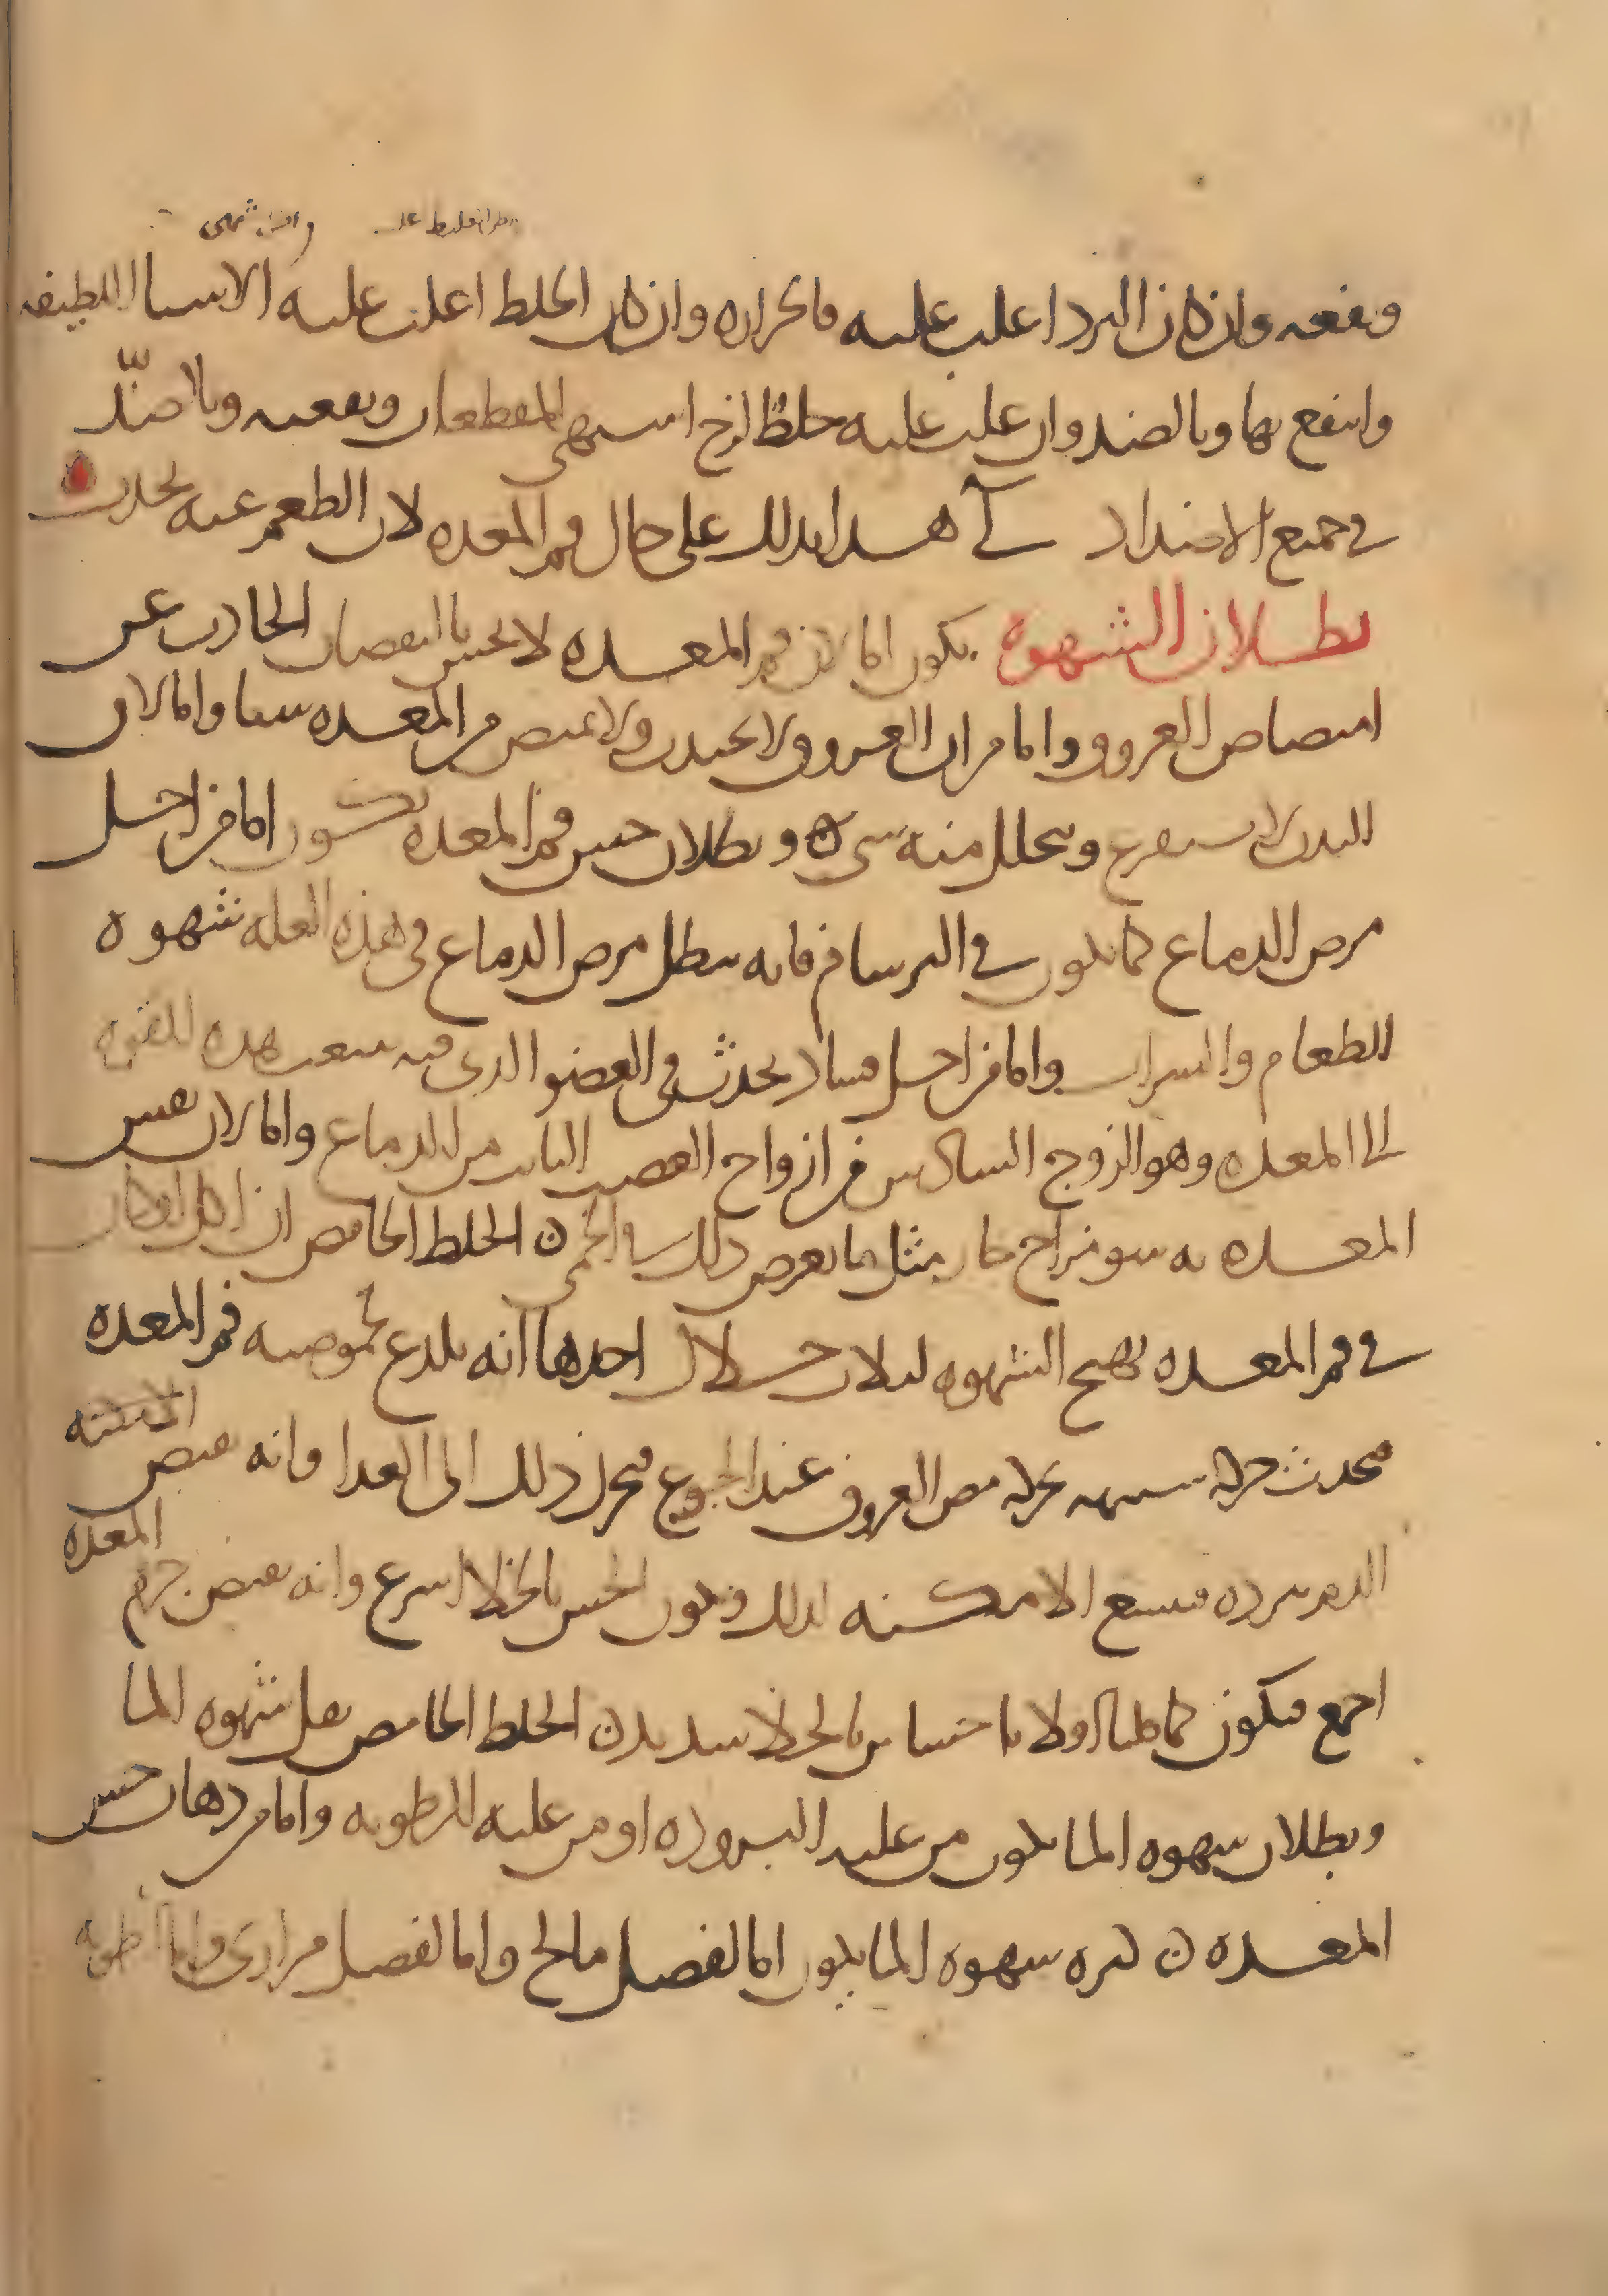 ونفعه وان كان البرد اغلب عليه فالحراره وان كان الخلط اغلب عليه الاشيا اللطيفه
وانتفع بها وبالضد وان غلب عليه خلط لزج اشتهى المقطعات ونفعته وبالضد
في جميع الاضداد هذا يدلك على حال فم المعده لان الطعم عنه يحدث
بطلان الشهوه يكون اما لان فم المعده لا يحس بالنقصان الحادث عن
امتصاص العروق واما من ان العروق لا تجذب ولا تمتص من المعده شيا واما لان
البدن لا يستفرغ ويتحلل منه شي وبطلان حس فم المعده يكون اما من اجل
مرض الدماغ كما يكون في البرسام فانه يبطل مرض الدماغ في هذه العله شهوه
الطعام والشراب واما من اجل فساد يحدث في العضو الذي فيه تنبعث هذه القوه
الى المعده وهو الزوج السادس من ازواج العصب النابت من الدماغ واما لان نفس
المعده به سو مزاج حار مثل ما يعرض ذلك في الحمى الخلط الحامض ان كان
في فم المعده يهيج الشهوه لثلاث خلال احدها انه يلذع بحموضته فم المعده
فيحدث حركه شبيهه بحركه مص العروق عند الجوع فيحرك ذلك الى الغذا وانه يقبض
الدم ببرده فتتسع الامكنه لذلك ويكون الحس بالخلا اسرع وانه يقبض جرم المعده
اجمع فيكون كما قلنا اولا باحساس بالخلا شديد الخلط الحامض يقل شهوه الما
وبطلان شهوه الما يكون من غلبه البروده او من غلبه الرطوبه واما من ذهاب حس
المعده كثره شهوه الما يكون اما لفضل مالح واما لفضل مراري واما